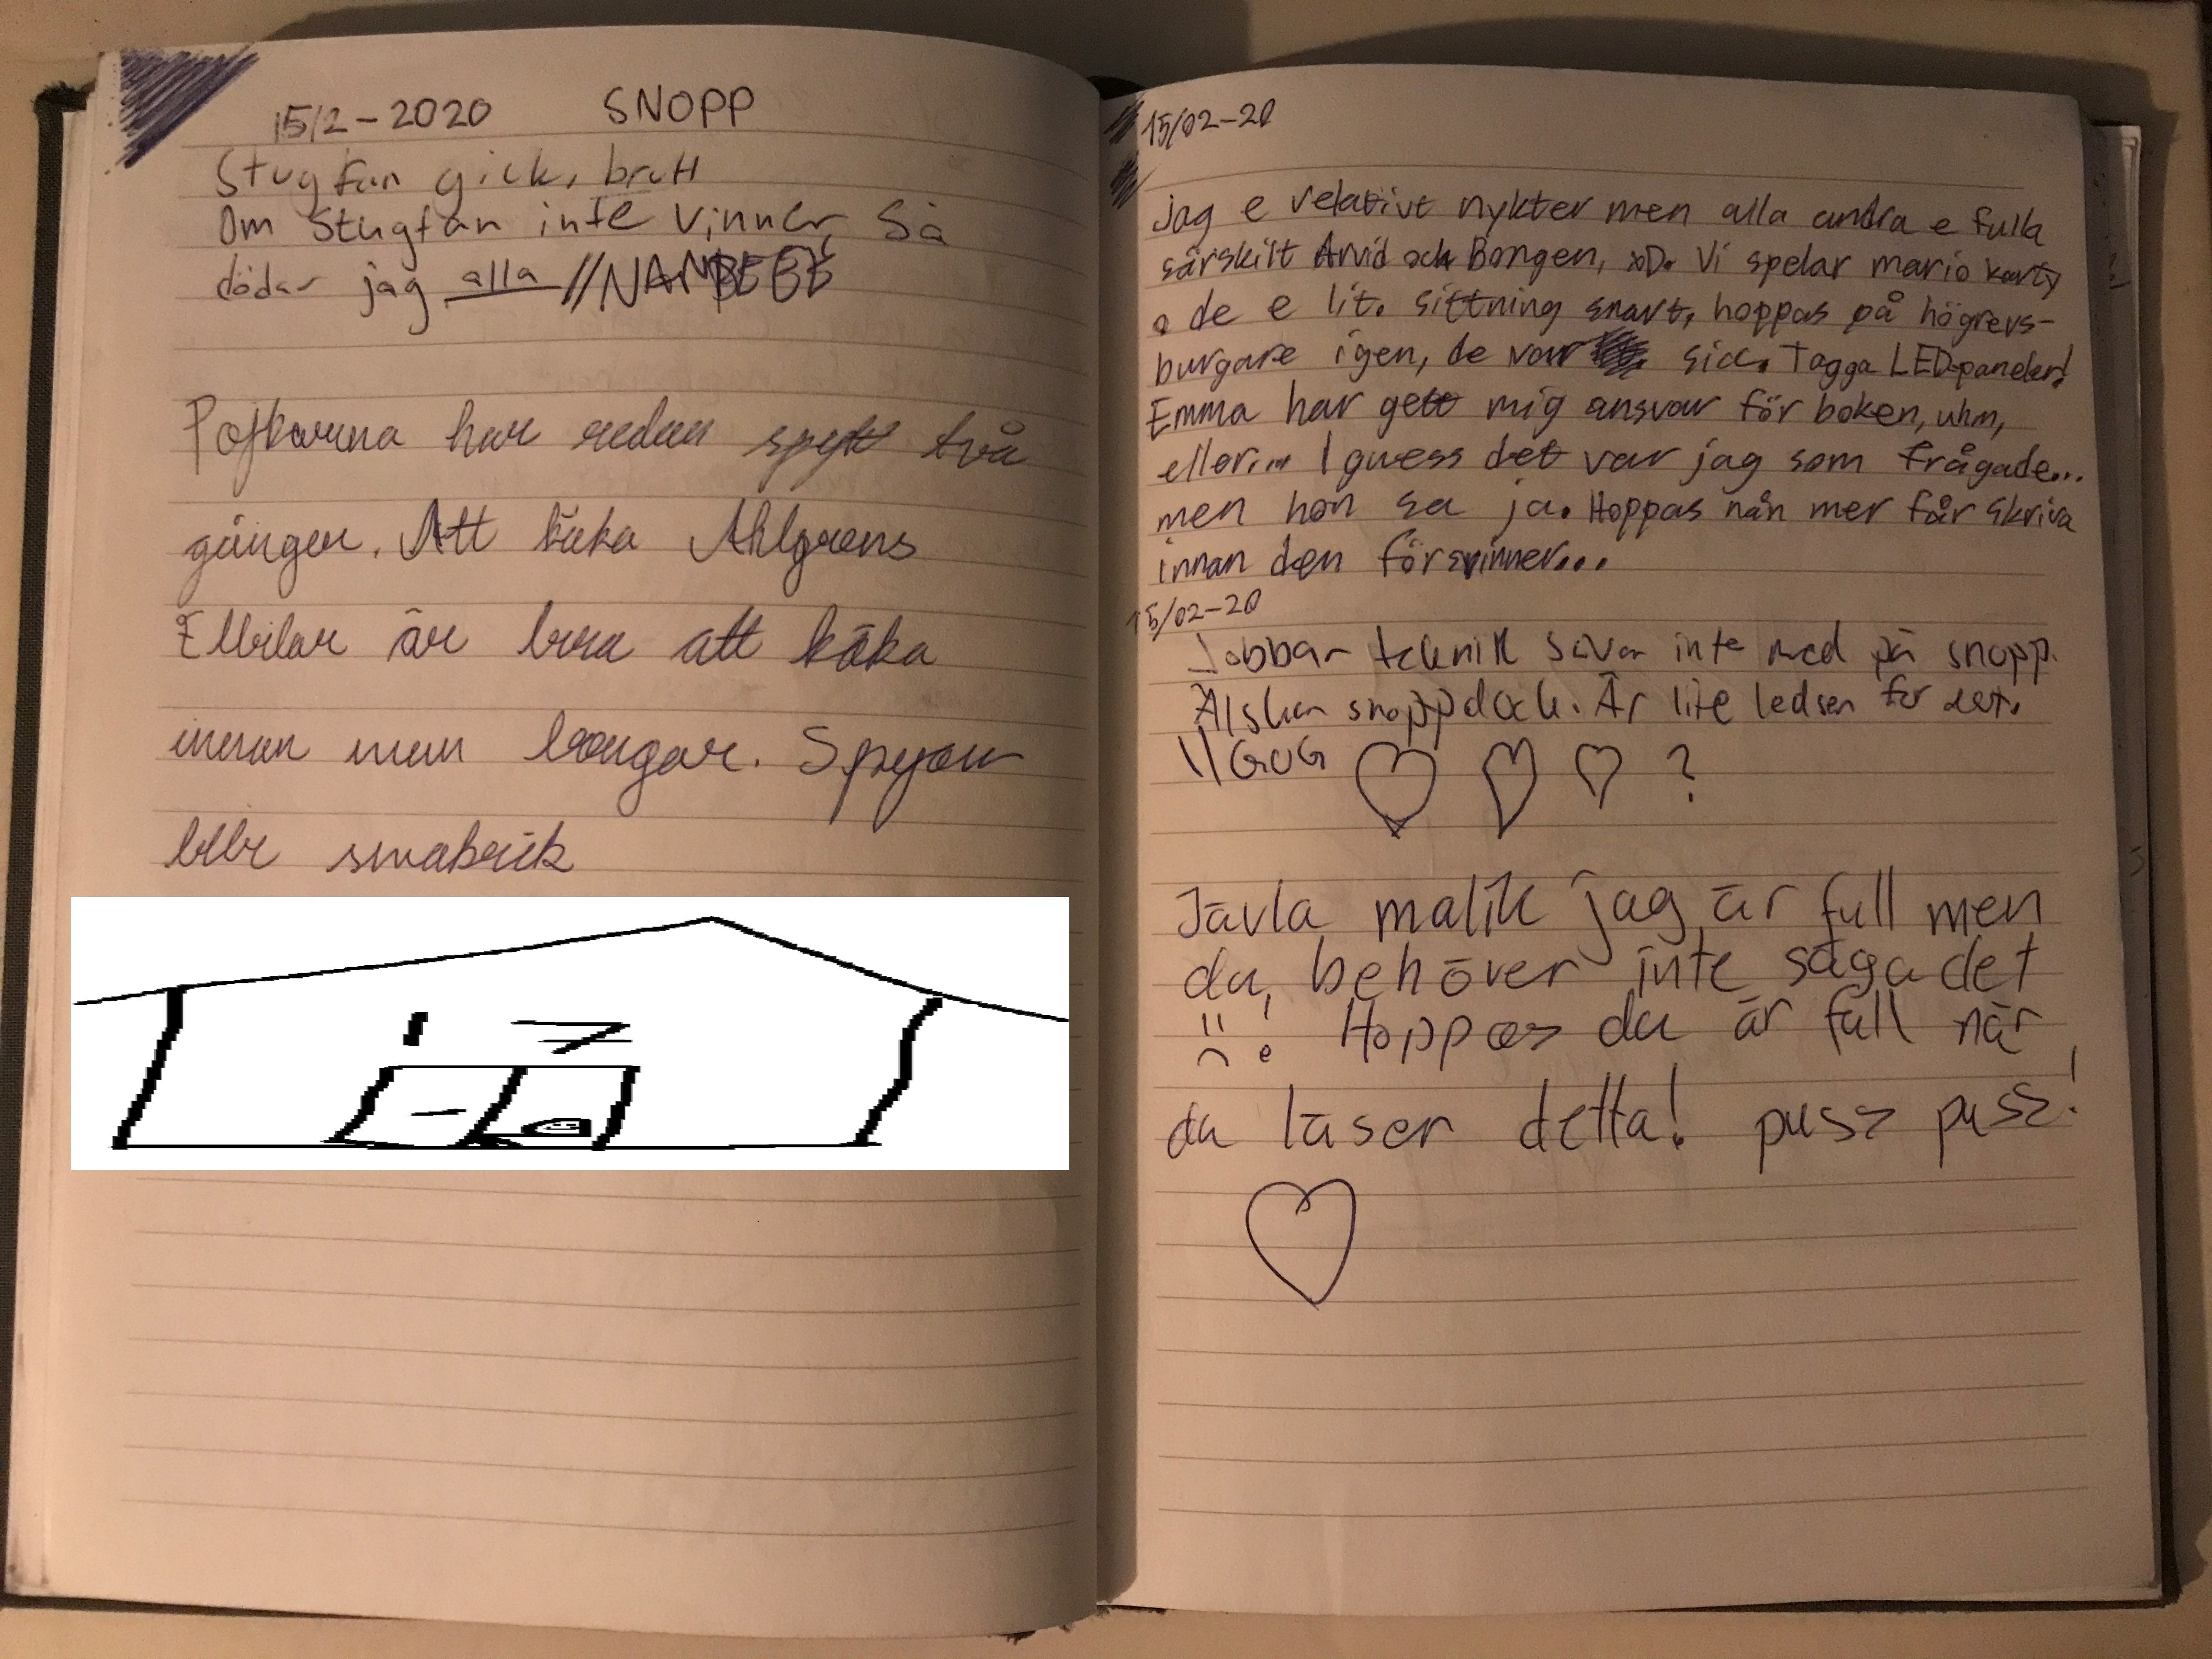 15/2-2020 SNOPP
Stugfan gick, brutt
Om Stugfan inte vinner, så
dödar jag alla //
Pojkarna har redan spytt två
gånger. Att käka Ahlgrens
Ellbilar är bra att käka
innan man bongar. Spyan
blir smakrik
15/02-20
jag e relativt nykter men alla andra e fulla
särskilt Arvid och Bongen, xD. Vi spelar mario kart,
o de e lit. sittning snart, hoppas på högrevs-
burgare igen, de var sick. Tagga LED-paneler!
Emma har gett mig ansvar för boken, uhm,
eller... I guess det var jag som frågade...
men hon sa ja. Hoppas nån mer får skriva
innan den försvinner...
15/02-20
Jobbar teknik så var inte med på snopp.
Älskar snopp dock. Är lite ledsen för det.
\\GUG ?
Jävla malik jag är full men
du, behöver inte säga det
! Hoppas du är full när
du läser detta! puss puss!